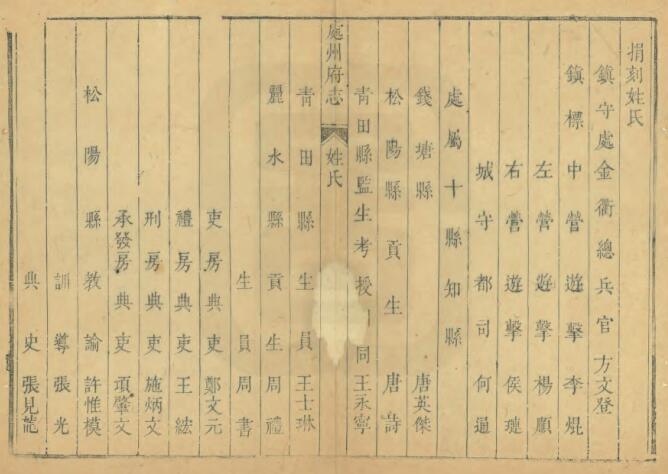 捐刻姓氏
鎮守處金衢總兵官方文登
鎮標中營遊擊李焜
左營遊擊楊順
右營遊擊侯璉
城守都司何通
處屬十縣知縣
錢塘縣唐英傑
松陽縣貢生唐詩
青田縣監生考授同王永寧
處州府志
姓氏
青田縣生員王士琳
麗水縣貢生周禮
生員周書
吏房典吏鄭文元
禮房典吏王紘
刑房典吏施炳文
承發房典吏項肇文
松陽縣教諭許惟模
訓導張光
典史張見龍